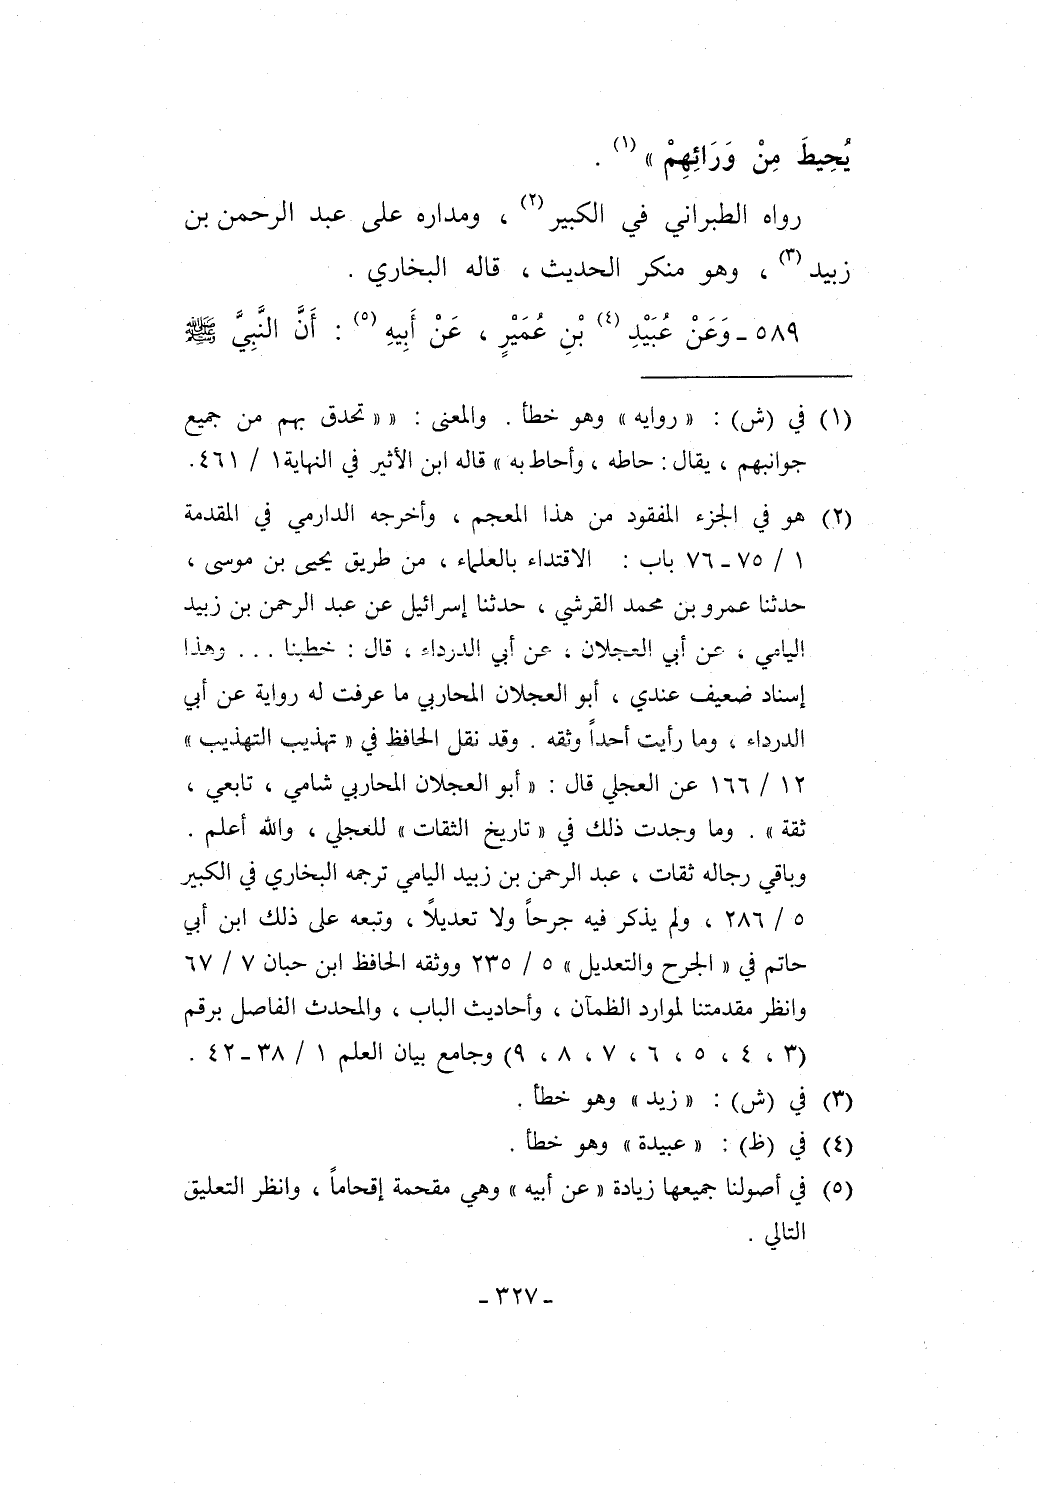 يُحِيطَ مِنْ وَرَائِهِمْ »(١) .
رواه الطبراني في الكبير(٢) ، ومداره على عبد الرحمن بن
زبيد(٣) ، وهو منكر الحديث ، قاله البخاري .
٥٨٩ ـ وَعَنْ عُبَيْدِ(٤) بْنِ عُمَيْرٍ ، عَنْ أَبِيهِ(٥) : أَنَّ النَّبِيَّ ﷺ
(١) في (ش) : « روايه » وهو خطأ . والمعنى : « « تحدق بهم من جميع
جوانبهم ، يقال : حاطه ، وأحاط به » قاله ابن الأثير في النهاية ١ / ٤٦١ .
(٢) هو في الجزء المفقود من هذا المعجم ، وأخرجه الدارمي في المقدمة
١ / ٧٥ ـ ٧٦ باب : الاقتداء بالعلماء ، من طريق يحيى بن موسى ،
حدثنا عمرو بن محمد القرشي ، حدثنا إسرائيل عن عبد الرحمن بن زبيد
اليامي ، عن أبي العجلان ، عن أبي الدرداء ، قال : خطبنا ... وهذا
إسناد ضعيف عندي ، أبو العجلان المحاربي ما عرفت له رواية عن أبي
الدرداء ، وما رأيت أحداً وثقه . وقد نقل الحافظ في « تهذيب التهذيب »
١٢ / ١٦٦ عن العجلي قال : « أبو العجلان المحاربي شامي ، تابعي ،
ثقة » . وما وجدت ذلك في « تاريخ الثقات » للعجلي ، والله أعلم .
وباقي رجاله ثقات ، عبد الرحمن بن زبيد اليامي ترجمه البخاري في الكبير
٥ / ٢٨٦ ، ولم يذكر فيه جرحاً ولا تعديلًا ، وتبعه على ذلك ابن أبي
حاتم في « الجرح والتعديل » ٥ / ٢٣٥ ووثقه الحافظ ابن حبان ٧ / ٦٧
وانظر مقدمتنا لموارد الظمآن ، وأحاديث الباب ، والمحدث الفاصل برقم
(٣ ، ٤ ، ٥ ، ٦ ، ٧ ، ٨ ، ٩) وجامع بيان العلم ١ / ٣٨ ـ ٤٢ .
(٣) في (ش) : « زيد » وهو خطأ .
(٤) في (ظ) : « عبيدة » وهو خطأ .
(٥) في أصولنا جميعها زيادة « عن أبيه » وهي مقحمة إقحاماً ، وانظر التعليق
التالي .
ـ ٣٢٧ ـ